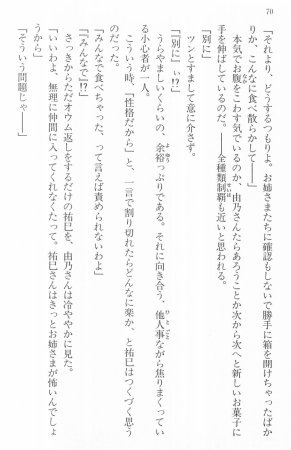 70
「それより、どうするつもりよ。お姉さまたちに確認もしないで勝手に箱を開けちゃったばか
りか、こんなに食べ散らかして――」
本気でお腹をこわす気でいるのか、由乃さんたらあろうことか次から次へと新しいお菓子に
手を伸ばしているのだ。――全種類制覇も近いと思われる。
「別に」
ツンとすまして意に介さず。
「『別に』ぃ!?」
うらやましいくらいの、余裕っぷりである。それに向き合う、他人事ながら焦りまくってい
る小心者が一人。
こういう時、「性格だから」と、一言で割り切れたらどんなに楽か、と祐巳はつくづく思う
のだった。
「みんなで食べちゃった、って言えば責められないわよ」
「『みんなで』!?」
さっきからただオウム返しをするだけの祐巳を、由乃さんは冷ややかに見た。
「いいわよ、無理に仲間に入ってくれなくたって。祐巳さんはきっとお姉さまが怖いんでしょ
うから」
「そういう問題じゃ――」